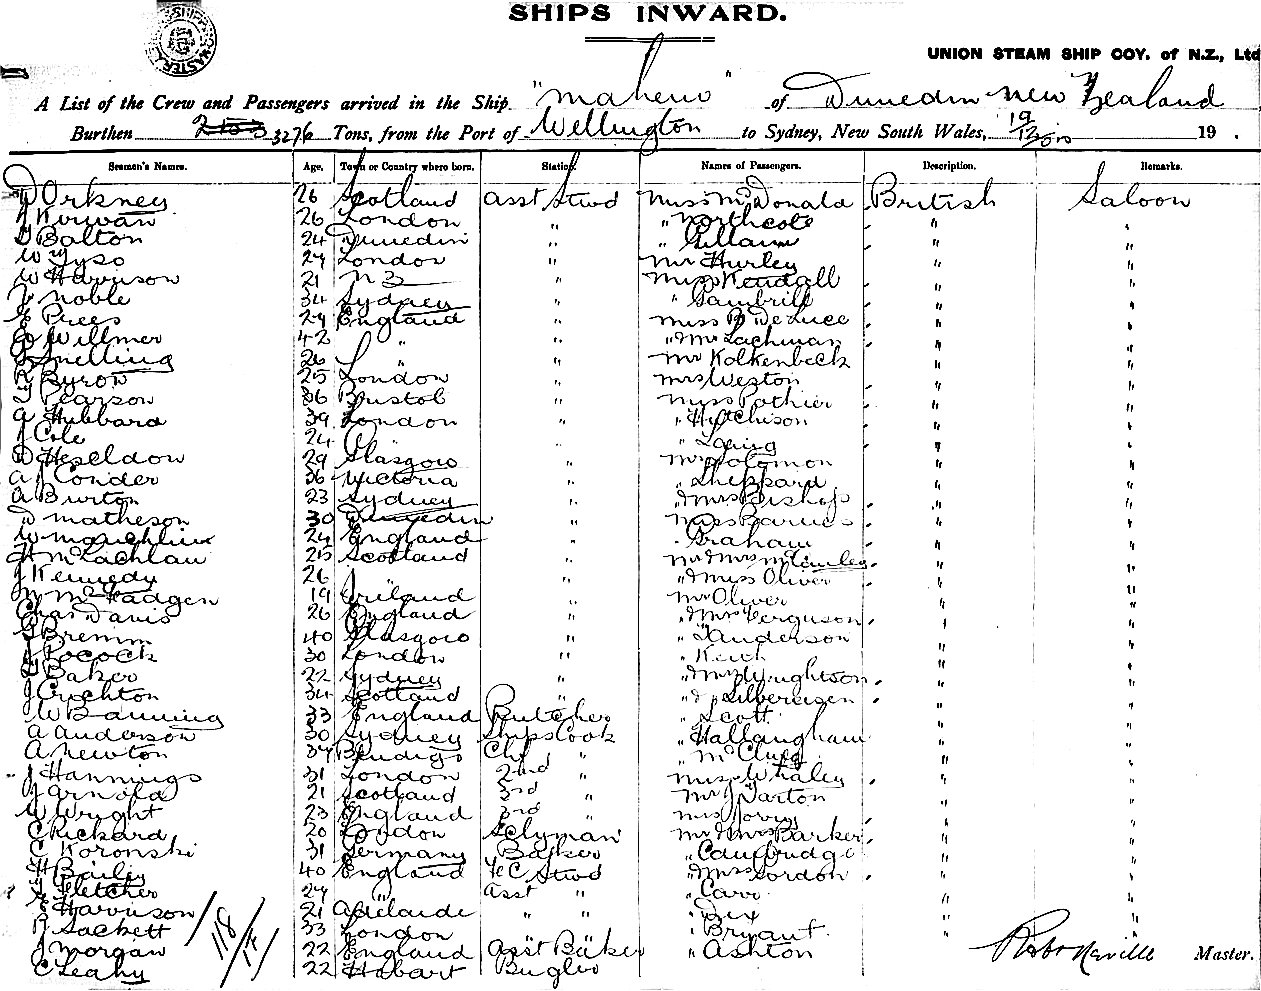 SHIPS INWARD.
UNION STEAM SHIP COY. of N.Z., Ltd
A List of the Crew and Passengers arrived in the Ship "Maheno" of Dunedin New Zealand
Burthen 3276 Tons, from the Port of Wellington to Sydney, New South Wales, 19 .
Seamen's Names. Age. Town or Country where born. Station. Names of Passengers. Description. Remarks.
Orkney 26 Scotland Asst Stwd Miss McDonald British Saloon
J Kirwan 26 London " " Northcote " "
Balton 24 Dunedin " " " "
W Tyso 24 London " Mr Hurley " "
W Harrison 21 NZ " Miss Kendall " "
Noble 34 Sydney " " Gambrill " "
Prees 29 England " Miss De Luce " "
Willmer 42 " " " Mr Lachman " "
Snelling 26 " " Mr Kolkenbeck " "
R Byron 25 London " Mrs Weston " "
Pearson 36 Bristol " Miss Pothier " "
A Hubbard 39 London " " Hutchison " "
J Cole 24 " " " Laing " "
D Heseldon 29 Glasgow " Mr Solomon " "
A J Conder 36 Victoria " " Sheppard " "
A Burton 23 Sydney " " Mrs Bishop " "
D Matheson 30 Dunedin " Miss Barnes " "
W 24 England " Graham " "
H McLachlan 25 Scotland " Mr & Mrs " "
J Kennedy 26 " " " & Miss Oliver " "
McFadgen 19 Ireland " Mr Oliver " "
Chas Davis 26 England " " Mrs Ferguson " "
Bremm 40 Glasgow " " Sanderson " "
J Pocock 30 London " " Keith " "
Baker 22 Sydney " " Wrightson " "
J Crichton 34 Scotland " " Silbereisen " "
W Banning 33 England Butcher " Scott " "
A Anderson 30 Sydney Ships Cook " Hallangham " "
A Newton 37 Bendigo Chf " " McClurg " "
J Hannings 31 London 2nd " Miss Whaley " "
J Arnold 21 Scotland 3rd " Mr J Darton " "
W Wright 23 England 3rd " " "
C Rickard 20 London Sclyman Mr & Mrs Barker " "
C Koronski 31 Germany Baker " " "
H Baily 40 England FC Stwd " Mrs Gordon " "
Fletcher 24 " Asst " " Carr " "
Harrison 21 Adelaide " " " Dex " "
R Sackett 33 London " " " Bryant " "
J Morgan 22 England Asst Baker " Ashton
C Leahy 22 Hobart Bugler
118
Robt Neville Master.